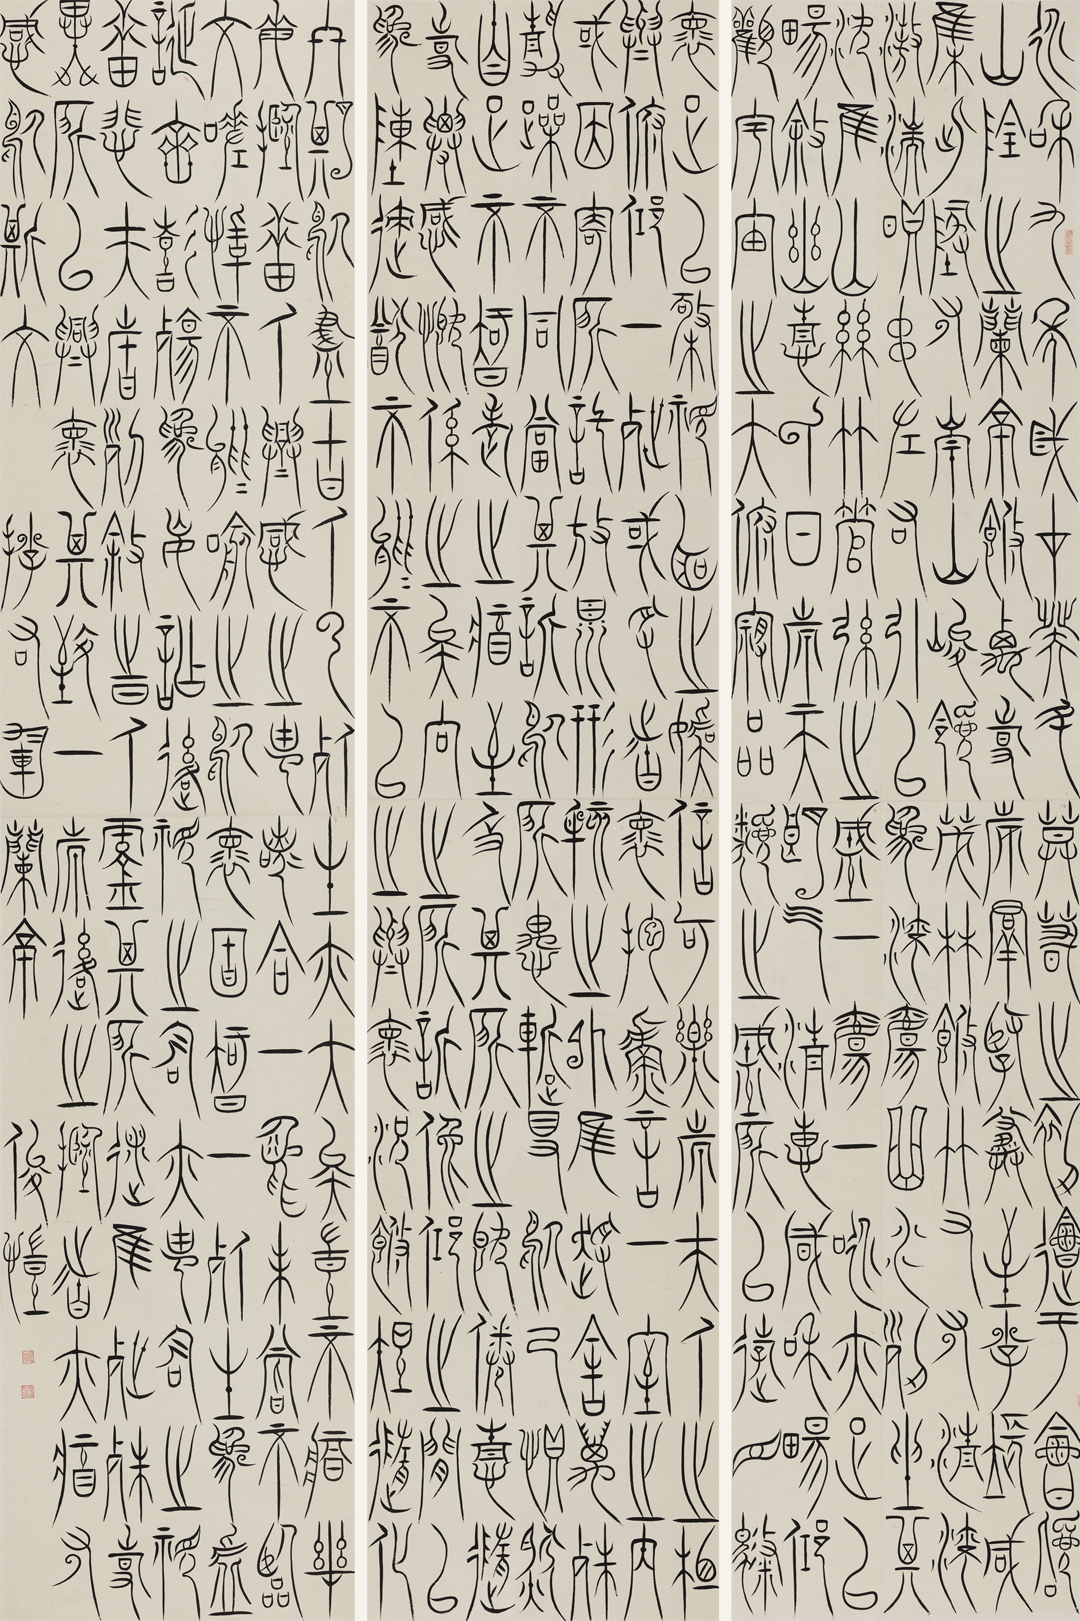 永和九年歲在癸丑莫春之初會于會稽
山陰之蘭亭脩禊事也羣賢畢至少長咸
集此地有崇山峻領茂林脩竹又有清流
激湍暎帶左右引以為流觴曲水列坐其
次雖無絲竹管弦之盛一觴一詠亦足以
暢敘幽情是日也天朗氣清惠風和暢仰
觀宇宙之大俯察品類之盛所以遊目騁
懷足以極視聽之娛信可樂也夫人之相
與俯仰一世或取諸懷抱悟言一室之內
或因寄所託放浪形骸之外雖趣舍萬殊
靜躁不同當其欣於所遇暫得於己快然
自足不知老之將至及其所之既惓情隨
事遷感慨係之矣向之所欣俛仰之間以
為陳迹猶不能不以之興懷況脩短隨化
終期於盡古人云死生亦大矣豈不痛哉
每攬昔人興感之由若合一契未嘗不臨
文嗟悼不能喻之於懷固知一死生為虛
誕齊彭殤為妄作後之視今亦由今之視
昔悲夫故列敘時人錄其所述雖世殊事
異所以興懷其致一也後之攬者亦將有
感於斯文 右軍蘭亭